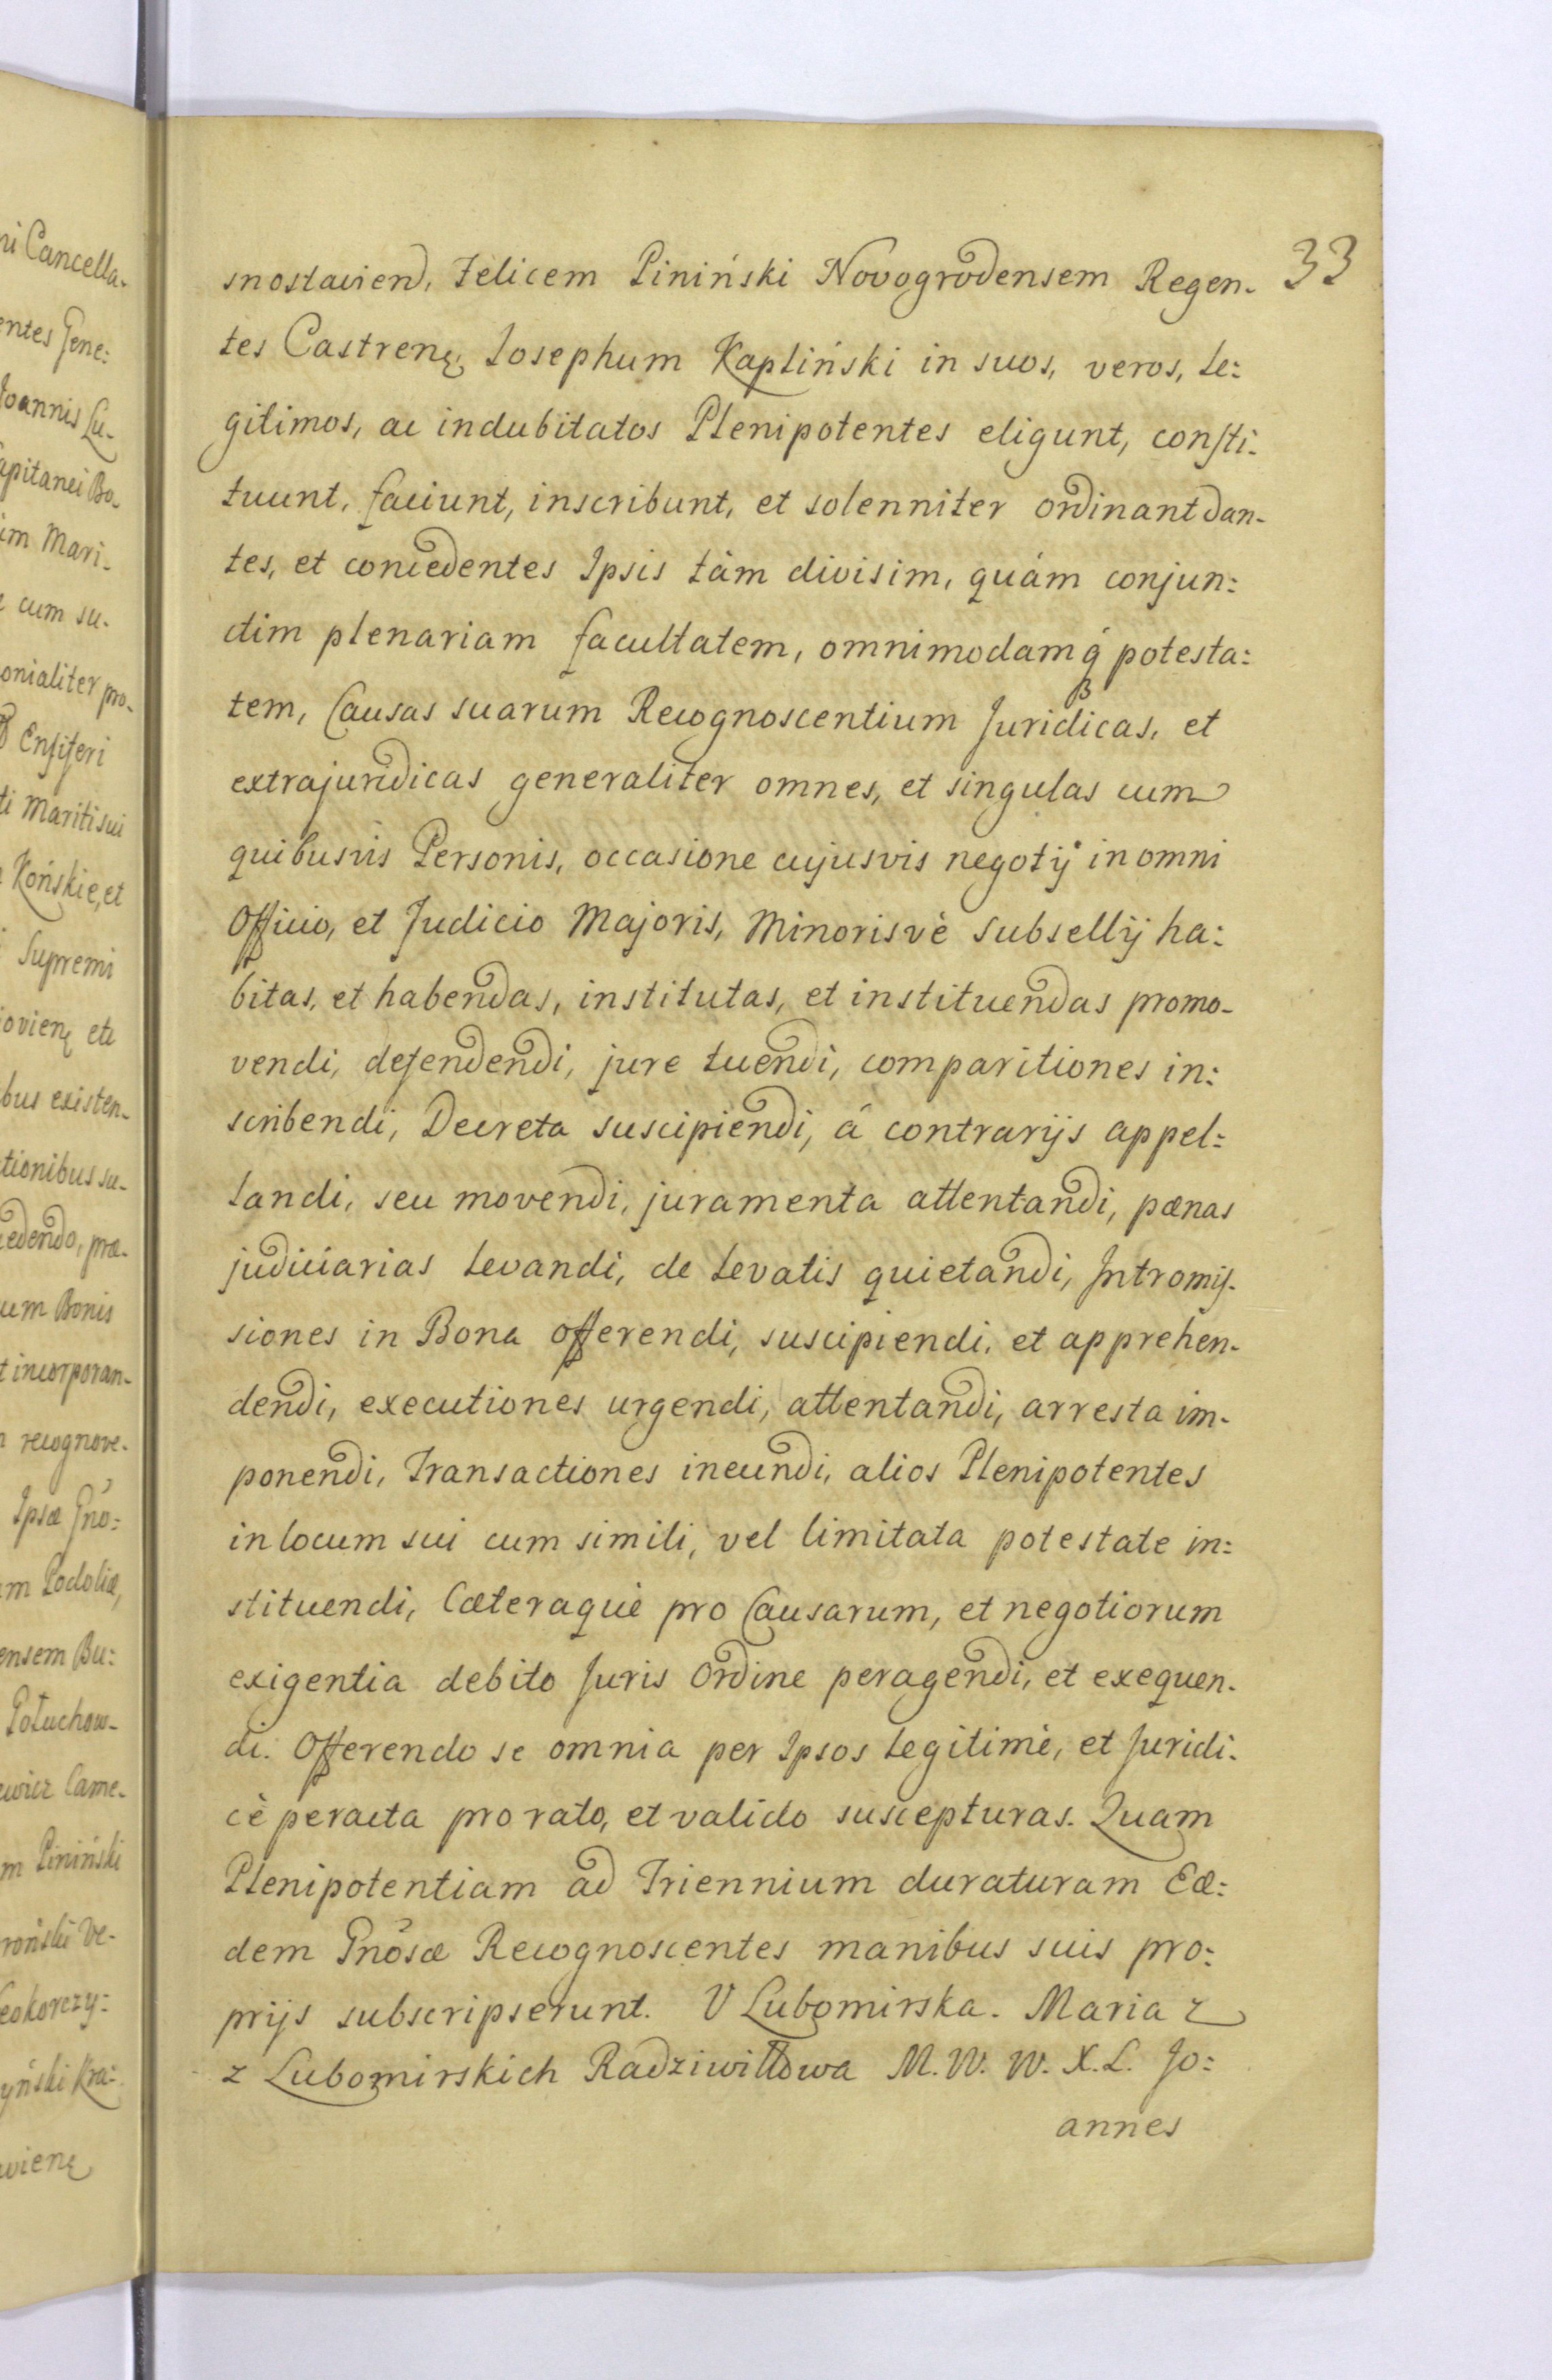 33
snostavien, Felicem Piniński Novogrodensem Regen-
tes Castrenę, Josephum Kapliński in suos, veros, le:
gitimos, ac indubitatos Plenipotentes eligunt, consti-
tuunt, faciunt, inscribunt, et solenniter ordinant dan-
tes, et concedentes Ipsis tàm divisim, quám conjun:
ctim plenariam facultatem, omnimodamq́ potesta:
tem, Causas suarum Recognoscentium Juridicas, et
extrajuridicas generaliter omnes, et singulas cum
quibusvis Personis, occasione cujusvis negotij in omni
Officio, et Judicio Majoris, Minorisvè subsellij ha:
bitas, et habendas, institutas, et instituendas promo-
vendi, defendendi, jure tuendi, comparitiones in:
scribendi, Decreta suscipiendi, á contrarijs appel:
landi, seu movendi, juramenta attentandi, pœnas
judiciarias levandi, de levatis quietandi, Intromis-
siones in Bona offerendi, suscipiendi, et apprehen-
dendi, executiones urgendi, attentandi, arresta im-
ponendi, Transactiones ineundi, alios Plenipotentes
in locum sui cum simili, vel limitata potestate in:
stituendi, Cæteraquè pro Causarum, et negotiorum
exigentia debito Juris Ordine peragendi, et exequen-
di. Offerendo se omnia per Ipsos legitimè, et Juridi-
cè peracta pro rato, et valido suscepturas. Quam
Plenipotentiam ad Triennium duraturam Eæ:
dem Gnősæ Recognoscentes manibus suis pro:
prijs subscripserunt. U Lubomirska. Maria z
z Lubomirskich Radziwiłłowa M. W. W. X. L. Jo:
annes